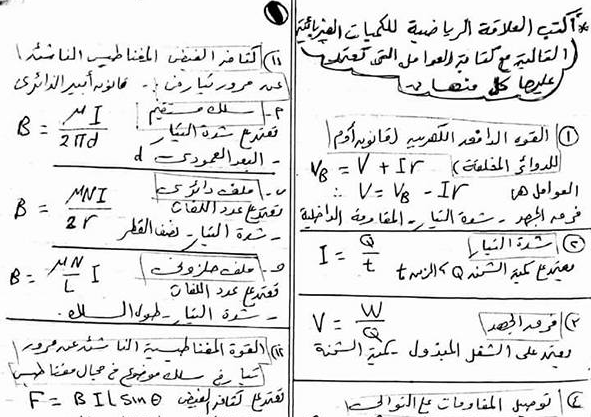 * أكتب العلاقة الرياضية للكميات الفيزيائية
التالية مع كتابة العوامل التى تعتمد
عليها كل منها
① القوه الدافعه الكهربيه (قانون أوم
للدوائر المغلقة) V_B = V + Ir
العوامل هى ∴ V = V_B - Ir
فرق الجهد - شدة التيار - المقاومة الداخلية
② شدة التيار I = Q/t
يعتمد على كمية الشحنه Q والزمن t
③ فرق الجهد V = W/Q
يعتمد على الشغل المبذول - كمية الشحنة
④ توصيل المقاومات على التوالى
⑪ كثافة الفيض المغناطيسى الناشئه
عن مرور تيار فى :- قانون أمبير الدائرى
م- سلك مستقيم B = μI/2πd
تعتمد على شدة التيار
- البعد العمودى d
ب- ملف دائرى B = μNI/2r
تعتمد على عدد اللفات
- شدة التيار - نصف القطر
ج- ملف حلزونى B = μN/L I
تعتمد على عدد اللفات
- شدة التيار - طول السلك.
⑫ القوة المغناطيسية الناشئه عن مرور
تيار فى سلك موضوع فى مجال مغناطيسى
تعتمد على كثافة الفيض F = BIL sinθ